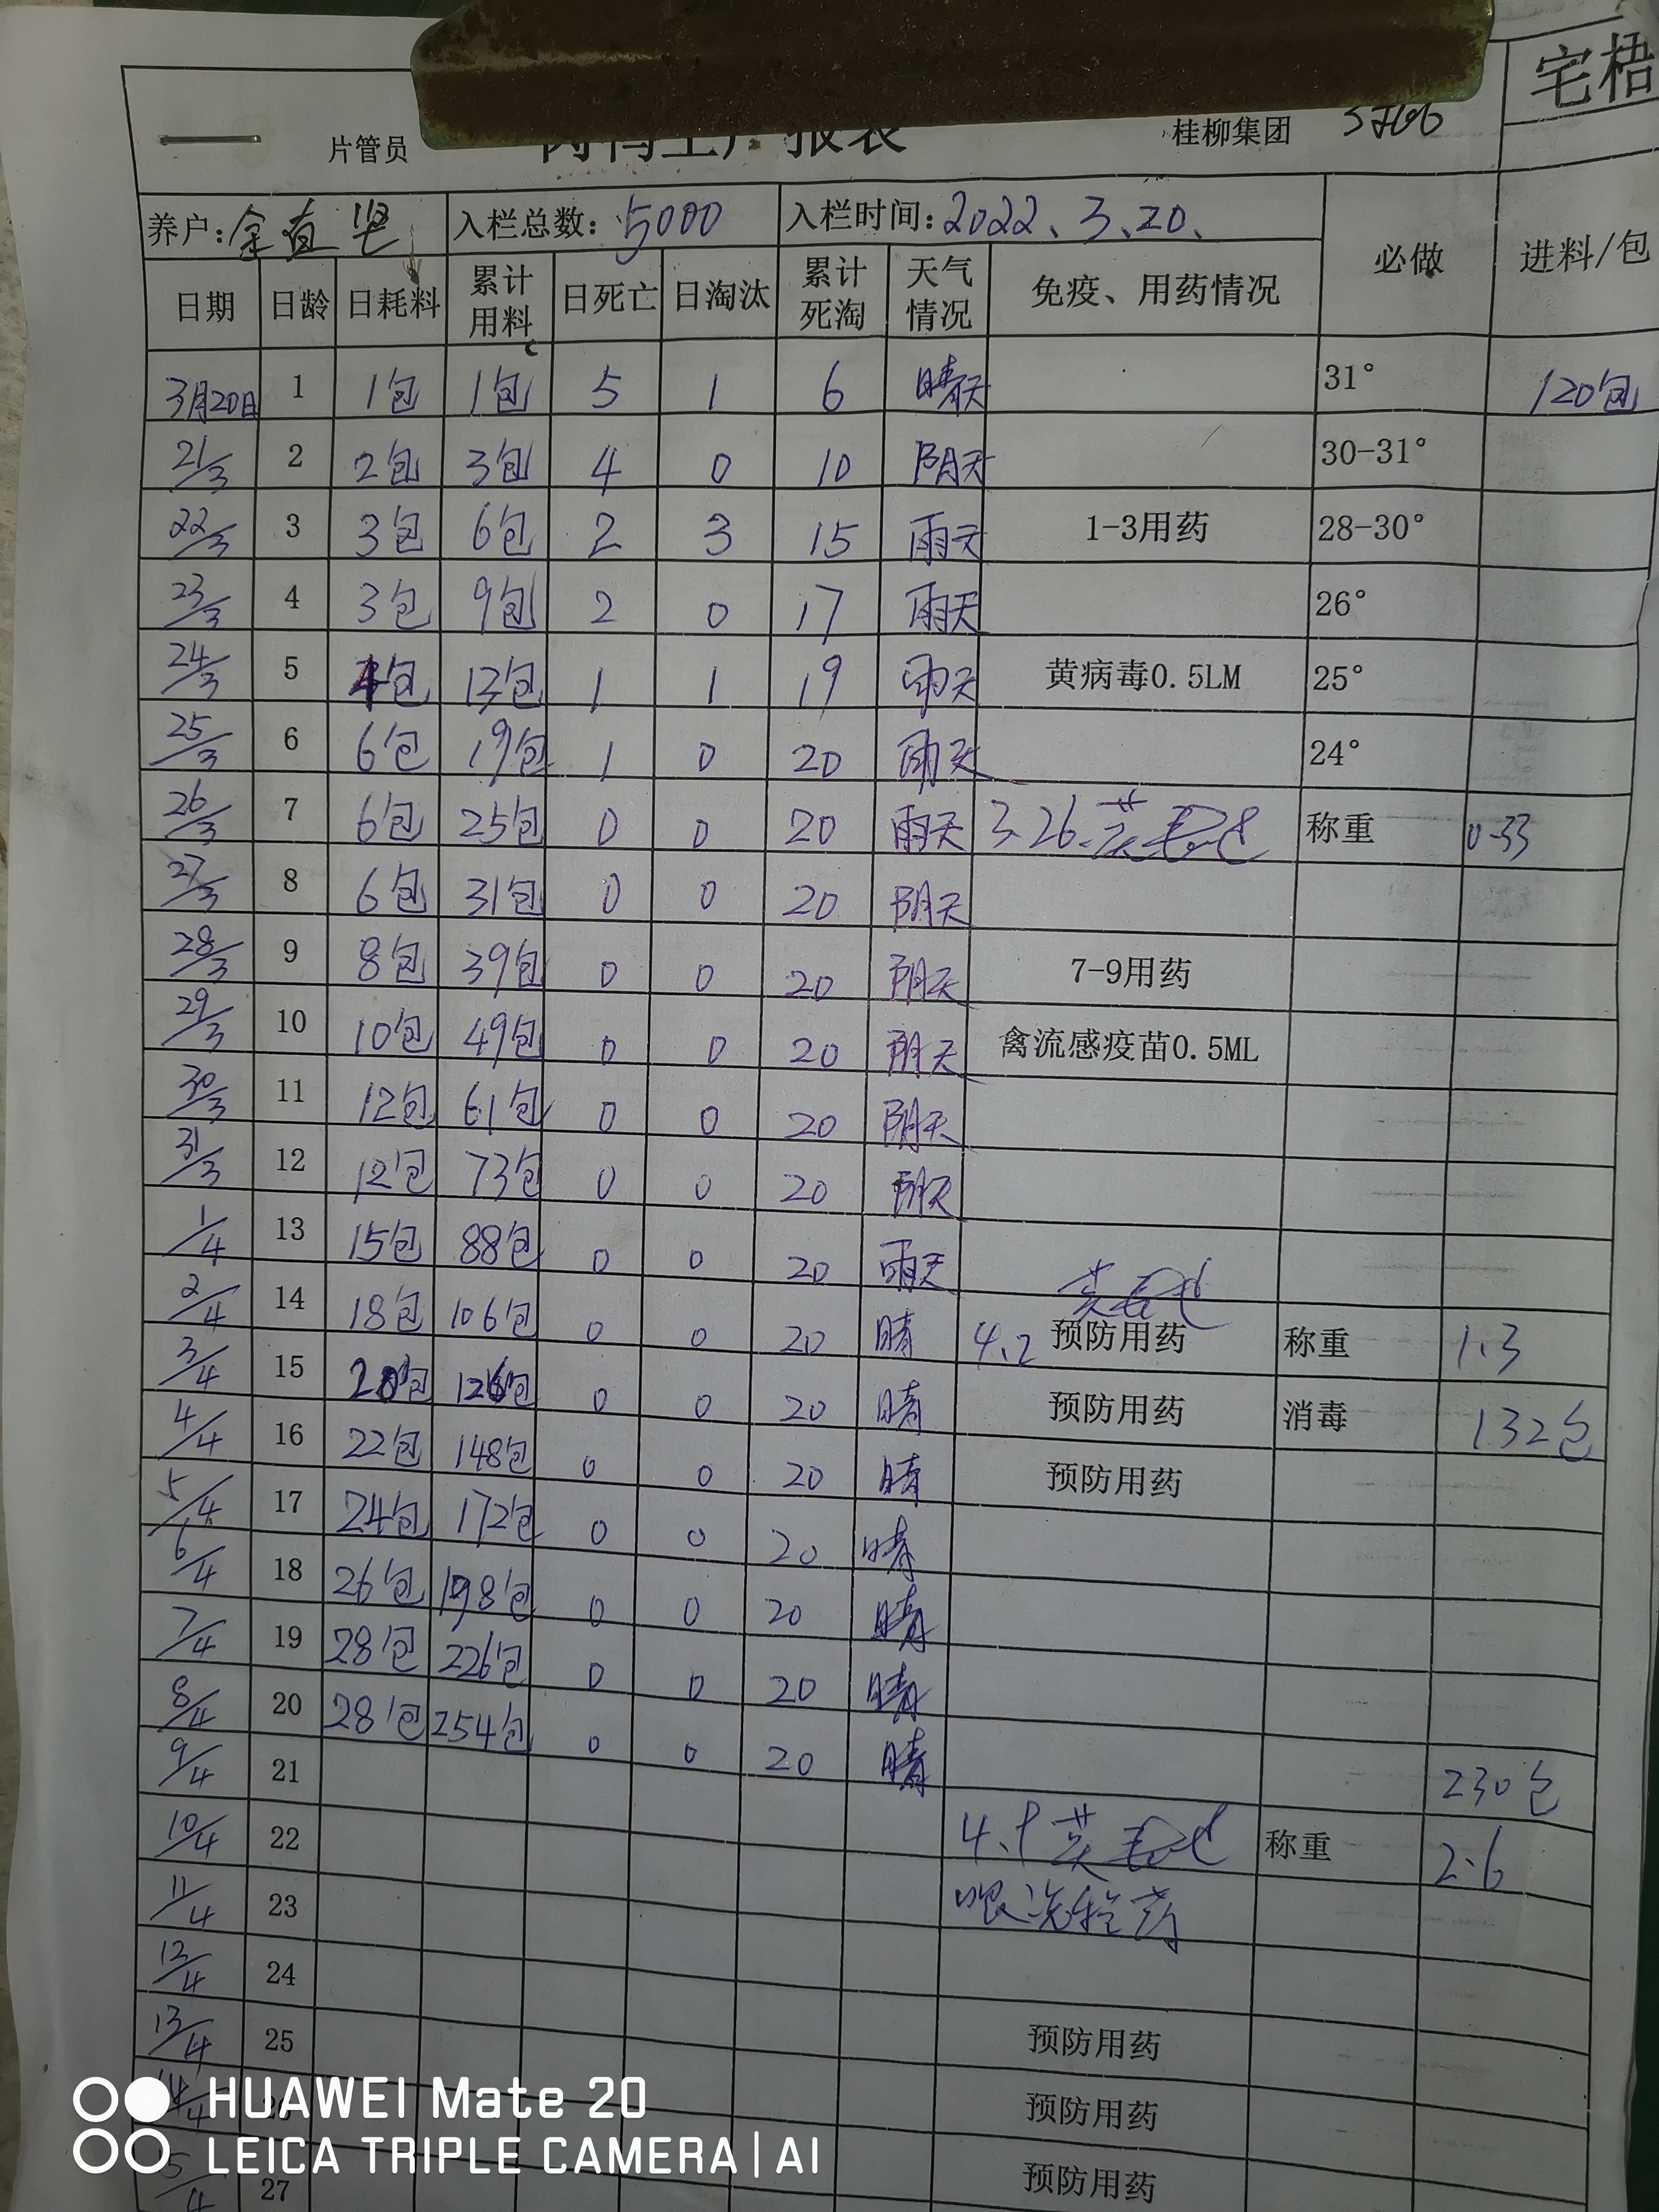 宅梧
片管员 报表 桂柳集团
养户: 入栏总数: 5000 入栏时间: 2022、3、20、 必做 进料/包
日期 日龄 日耗料 累计用料 日死亡 日淘汰 累计死淘 天气情况 免疫、用药情况
3月20日 1 1包 1包 5 1 6 晴天 31° 120包
21/3 2 2包 3包 4 0 10 阴天 30-31°
22/3 3 3包 6包 2 3 15 雨天 1-3用药 28-30°
23/3 4 3包 9包 2 0 17 雨天 26°
24/3 5 4包 13包 1 1 19 雨天 黄病毒0.5LM 25°
25/3 6 6包 19包 1 0 20 雨天 24°
26/3 7 6包 25包 0 0 20 雨天 3.26 称重 0.33
27/3 8 6包 31包 0 0 20 阴天
28/3 9 8包 39包 0 0 20 阴天 7-9用药
29/3 10 10包 49包 0 0 20 阴天 禽流感疫苗0.5ML
30/3 11 12包 61包 0 0 20 阴天
31/3 12 12包 73包 0 0 20 阴天
1/4 13 15包 88包 0 0 20 雨天
2/4 14 18包 106包 0 0 20 晴 4.2 预防用药 称重 1.3
3/4 15 20包 126包 0 0 20 晴 预防用药 消毒 132包
4/4 16 22包 148包 0 0 20 晴 预防用药
5/4 17 24包 172包 0 0 20 晴
6/4 18 26包 198包 0 0 20 晴
7/4 19 28包 226包 0 0 20 晴
8/4 20 28包 254包 0 0 20 晴
9/4 21 230包
10/4 22 称重 2.6
11/4 23
12/4 24
13/4 25 预防用药
14/4 预防用药
15/4 27 预防用药
HUAWEI Mate 20
LEICA TRIPLE CAMERA | AI